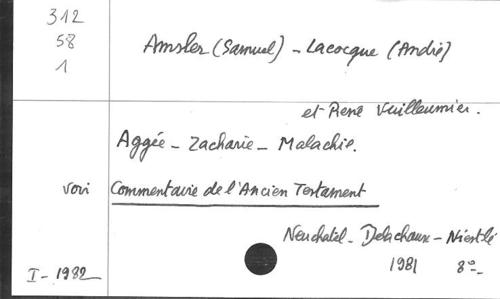 312
58
1
Amsler (Samuel) - Lacocque (André)
et René Vuilleumier.
Aggée - Zacharie - Malachie.
voir Commentaire de l'Ancien Testament
Neuchatel - Delachaux - Niestlé
1981 8°-
I - 1982